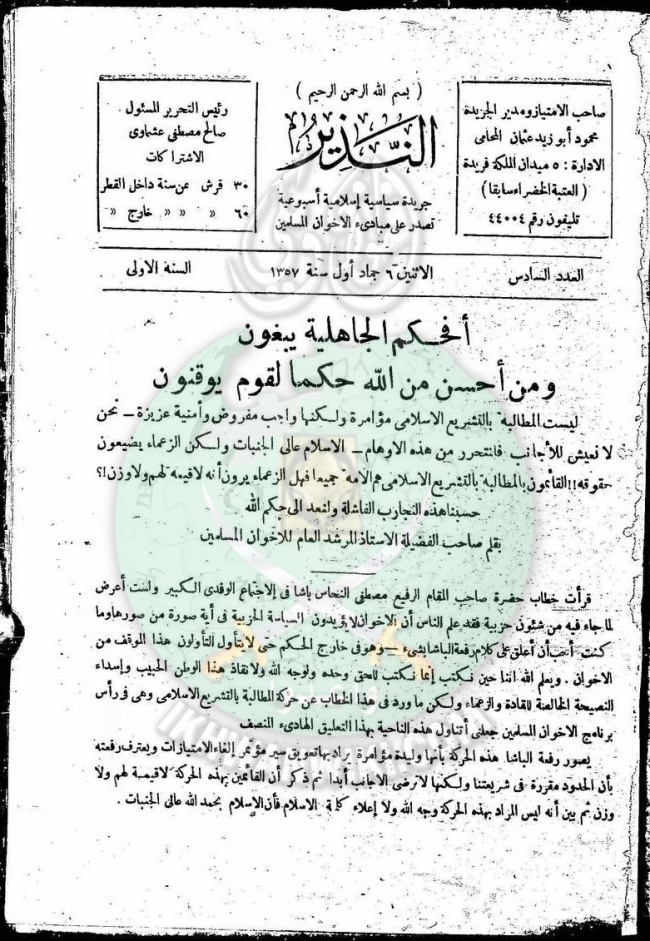 ( بسم الله الرحمن الرحيم )
النذير
جريدة سياسية إسلامية أسبوعية
تصدر على مبادىء الاخوان المسلمين
صاحب الامتياز ومدير الجريدة
محمود أبو زيد عثمان المحامى
الادارة : ٥ ميدان الملكة فريدة
( العتبة الخضراء سابقا )
تليفون رقم ٤٤٠٠٤
رئيس التحرير المسئول
صالح مصطفى عشماوى
الاشتراكات
٣٠ قرش عن سنة داخل القطر
٦٠ » » » خارج »
العدد السادس الاثنين ٦ جماد أول سنة ١٣٥٧ السنة الاولى
أفحكم الجاهلية يبغون
ومن أحسن من الله حكما لقوم يوقنون
ليست المطالبة بالتشريع الاسلامى مؤامرة ولكنها واجب مفروض وأمنية عزيزة – نحن
لا نعيش للأجانب فانتحرر من هذه الاوهام – الاسلام عالى الجنبات ولكن الزعماء يضيعون
حقوقه !! القائمون بالمطالبة بالتشريع الاسلامى هم الامة جميعا فهل الزعماء يرون أنه لا قيمة لهم ولا وزن !؟
حسبنا هذه التجارب الفاشلة ولنعد الى حكم الله
بقلم صاحب الفضيلة الاستاذ المرشد العام للاخوان المسلمين
قرأت خطاب حضرة صاحب المقام الرفيع مصطفى النحاس باشا فى الاجتماع الوفدى الكبير ولست أعرض
لما جاء فيه من شئون حزبية فقد علم الناس أن الاخوان لا يؤيدون السياسة الحزبية فى أية صورة من صورها وما
كنت أحب أن أعلق على كلام رفعة الباشا بشىء – وهو فى خارج الحكم حتى لا يتأول المتأولون هذا الموقف من
الاخوان . ويعلم الله اننا حين نكتب إنما نكتب للحق وحده ولوجه الله ولانقاذ هذا الوطن الحبيب وإسداء
النصيحة الخالصة للقادة والزعماء ولكن ما ورد فى هذا الخطاب عن حركة المطالبة بالتشريع الاسلامى وهى فى رأس
برنامج الاخوان المسلمين جعلنى أتناول هذه الناحية بهذا التعليق الهادىء المنصف
يصور رفعة الباشا هذه الحركة بأنها وليدة مؤامرة يراد بها تعويق سير مؤتمر إلغاء الامتيازات ويعترف رفعته
بأن الحدود مقررة فى شريعتنا ولكنها لا ترضى الاجانب أبدا ثم ذكر أن القائمين بهذه الحركة لا قيمة لهم ولا
وزن ثم بين أنه ليس المراد بهذه الحركة وجه الله ولا إعلاء كلمة الاسلام فأن الاسلام بحمد الله عالى الجنبات .